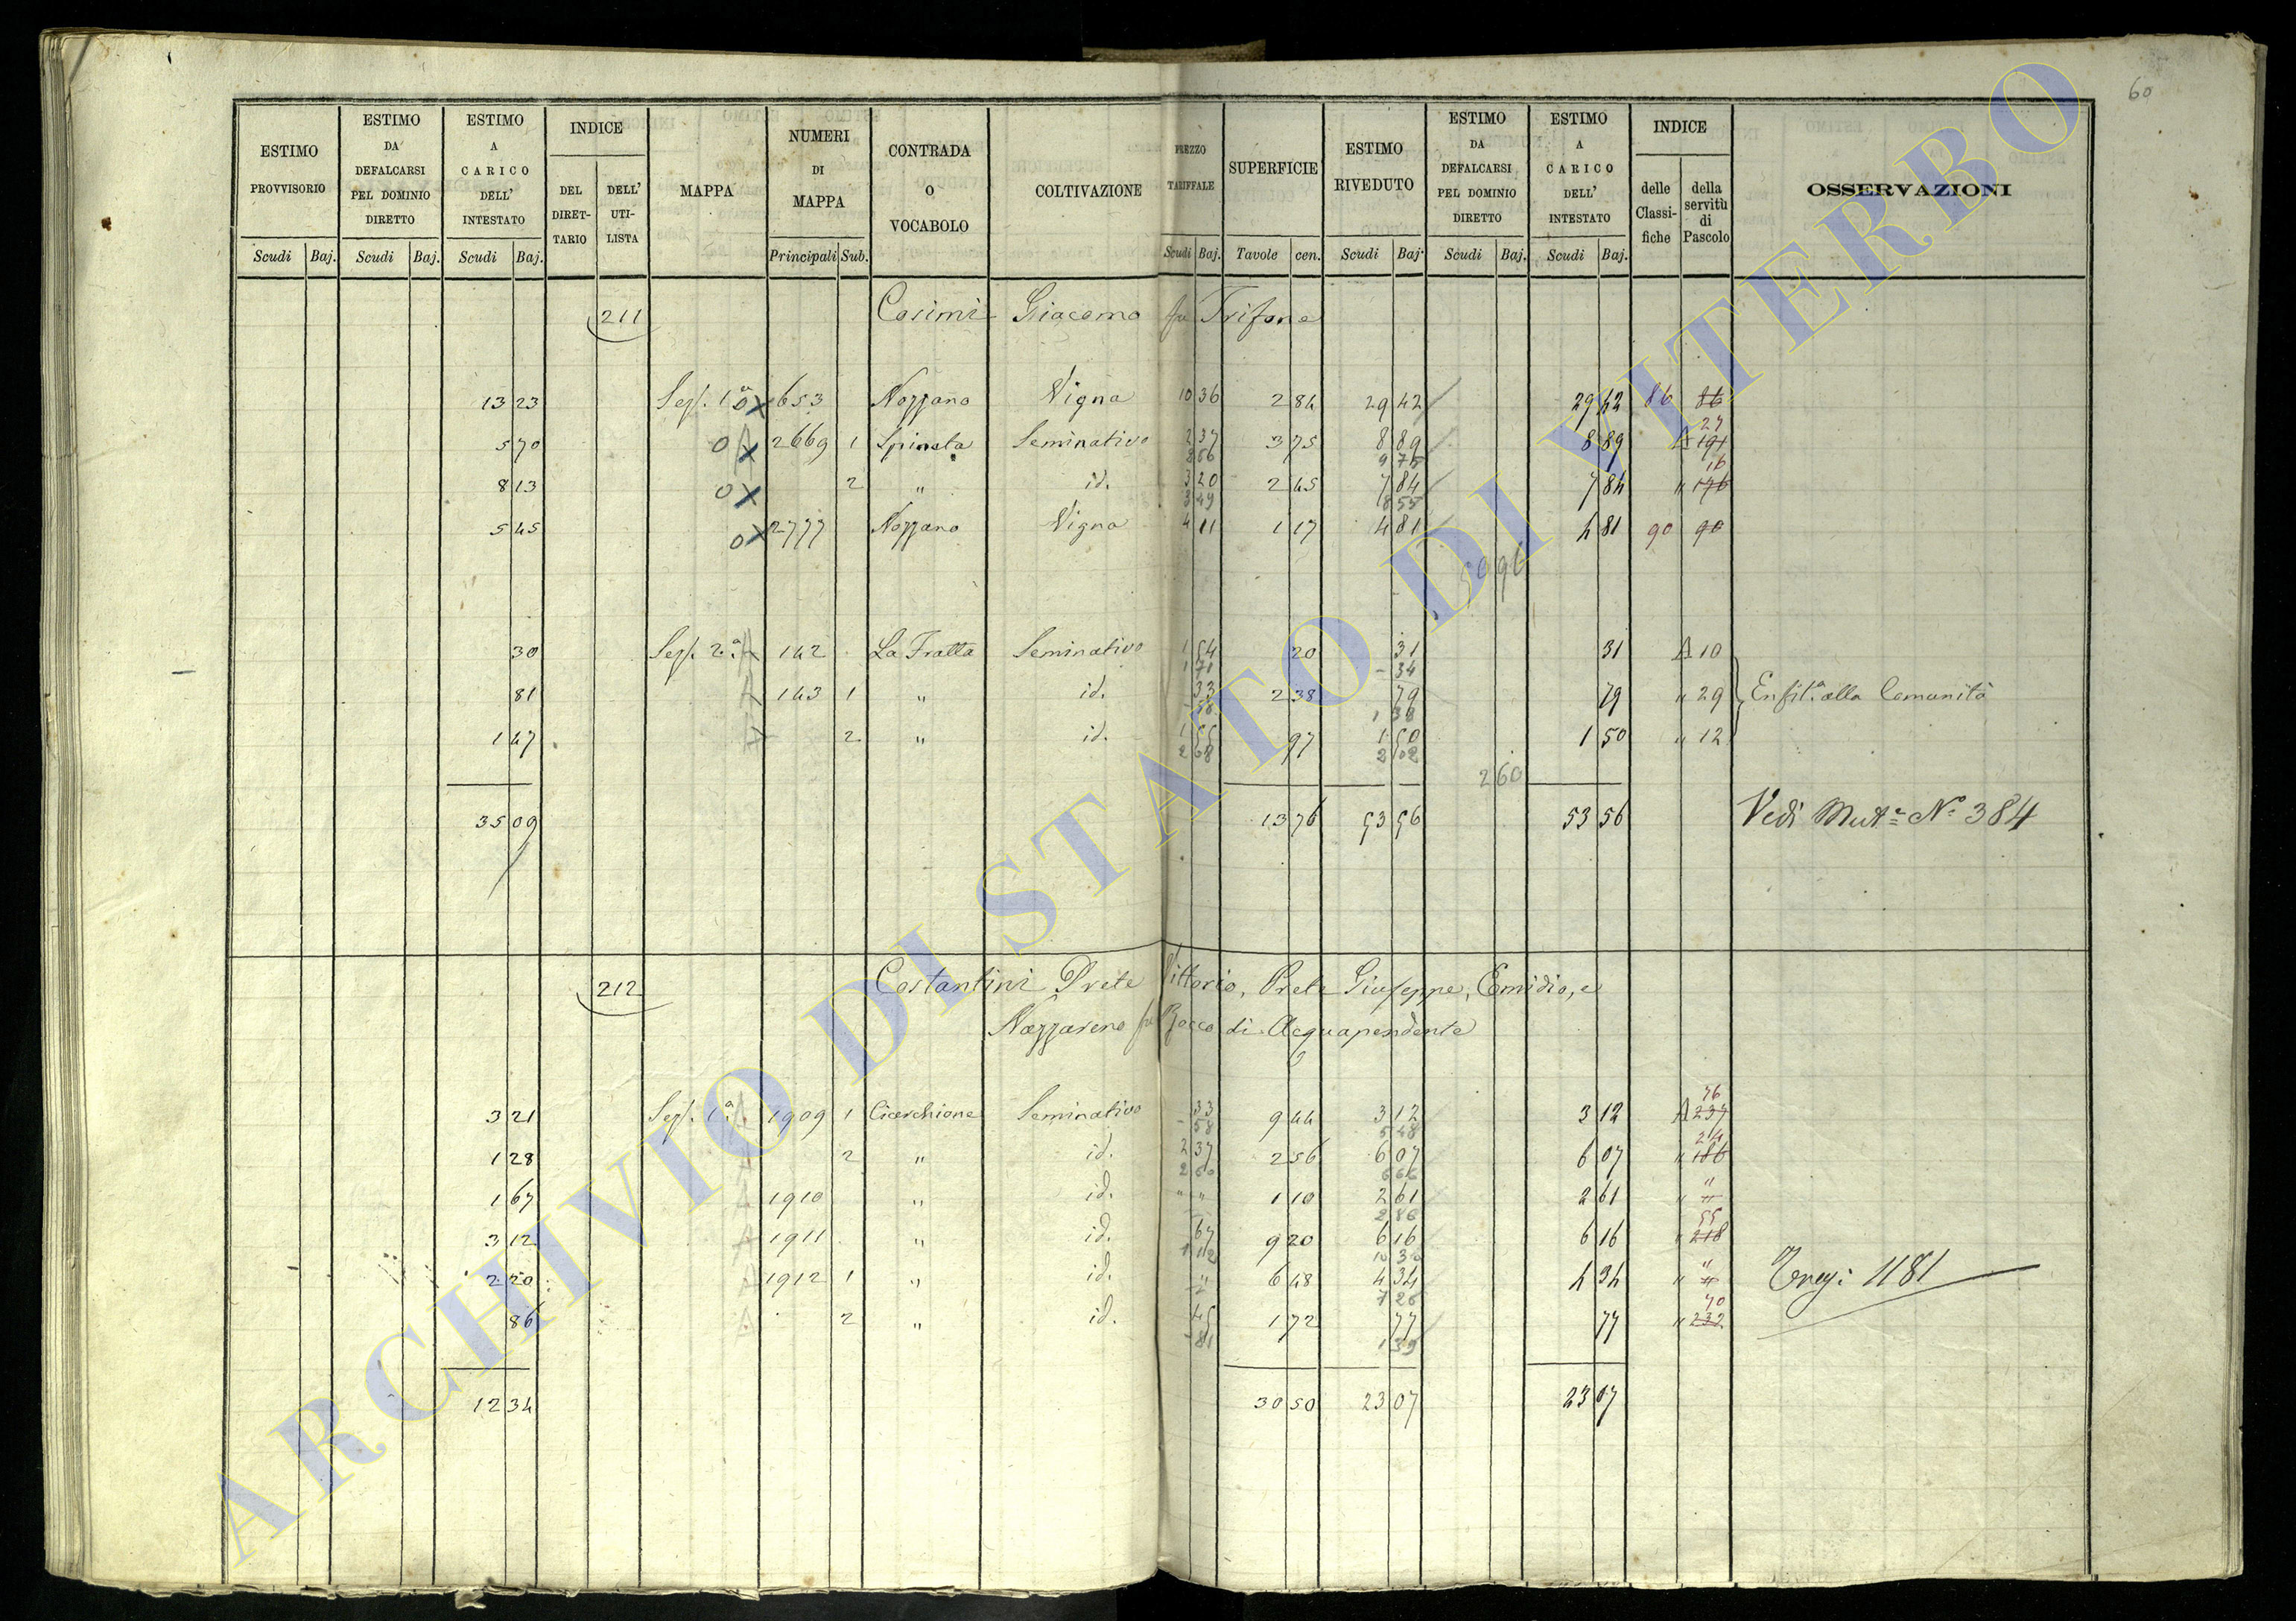 60
ESTIMO PROVVISORIO | ESTIMO DA DEFALCARSI PEL DOMINIO DIRETTO | ESTIMO A CARICO DELL' INTESTATO | INDICE | MAPPA | NUMERI DI MAPPA | CONTRADA O VOCABOLO | COLTIVAZIONE | PREZZO TARIFFALE | SUPERFICIE | ESTIMO RIVEDUTO | ESTIMO DA DEFALCARSI PEL DOMINIO DIRETTO | ESTIMO A CARICO DELL' INTESTATO | INDICE | OSSERVAZIONI
DEL DIRETTARIO | DELL' UTILISTA | delle Classifiche | della servitù di Pascolo
Scudi | Baj. | Scudi | Baj. | Scudi | Baj. | Principali | Sub. | Scudi | Baj. | Tavole | cen. | Scudi | Baj. | Scudi | Baj. | Scudi | Baj.
211 Cosimi Giacomo fu Trifone
13 23 | Sez. 1ª | 0 X | 653 | Nozzano | Vigna | 10 36 | 2 84 | 29 42 | 29 42 | 86 | 86
27
5 70 | 0 X | 2669 | 1 | Spineta | Seminativo | 2 37 | 3 75 | 8 89 | 8 89 | A 191
9 75
16
8 13 | 0 X | 2 | " | id. | 3 20 | 2 45 | 7 84 | 7 84 | " 176
3 49 | 8 55
5 45 | 0 X | 2777 | Nozzano | Vigna | 4 11 | 1 17 | 4 81 | 4 81 | 90 | 90
30 | Sez. 2ª | 142 | La Fratta | Seminativo | 1 54 | 20 | 31 | 31 | A 10
1 71 | - 34
81 | 143 | 1 | " | id. | 33 | 2 38 | 79 | 79 | " 29 | Enfit.ª alla Comunità
- 58 | 1 38
1 47 | 2 | " | id. | 1 55 | 97 | 1 50 | 1 50 | " 12
2 68 | 2 02
2 60
35 09 | 13 76 | 53 56 | 53 56 | Vedi Mutª Nº 384
212 Costantini Prete Vittorio, Prete Giuseppe, Emidio, e
Nazzareno fu Rocco di Acquapendente
76
3 21 | Sez. 1ª | 1909 | 1 | Cicerchione | Seminativo | 33 | 9 44 | 3 12 | 3 12 | A 237
- 58 | 5 48
24
1 28 | 2 | " | id. | 2 37 | 2 56 | 6 07 | 6 07 | " 186
2 60 | 6 66
"
1 67 | 1910 | " | id. | " " | 1 10 | 2 61 | 2 61 | " "
2 86
55
3 12 | 1911 | " | id. | 67 | 9 20 | 6 16 | 6 16 | " 218
1 12 | 10 30
"
2 20 | 1912 | 1 | " | id. | " | 6 48 | 4 34 | 4 34 | " " | 1181
7 26
70
86 | 2 | " | id. | 45 | 1 72 | 77 | 77 | " 232
- 81 | 1 39
12 34 | 30 50 | 23 07 | 23 07
ARCHIVIO DI STATO DI VITERBO